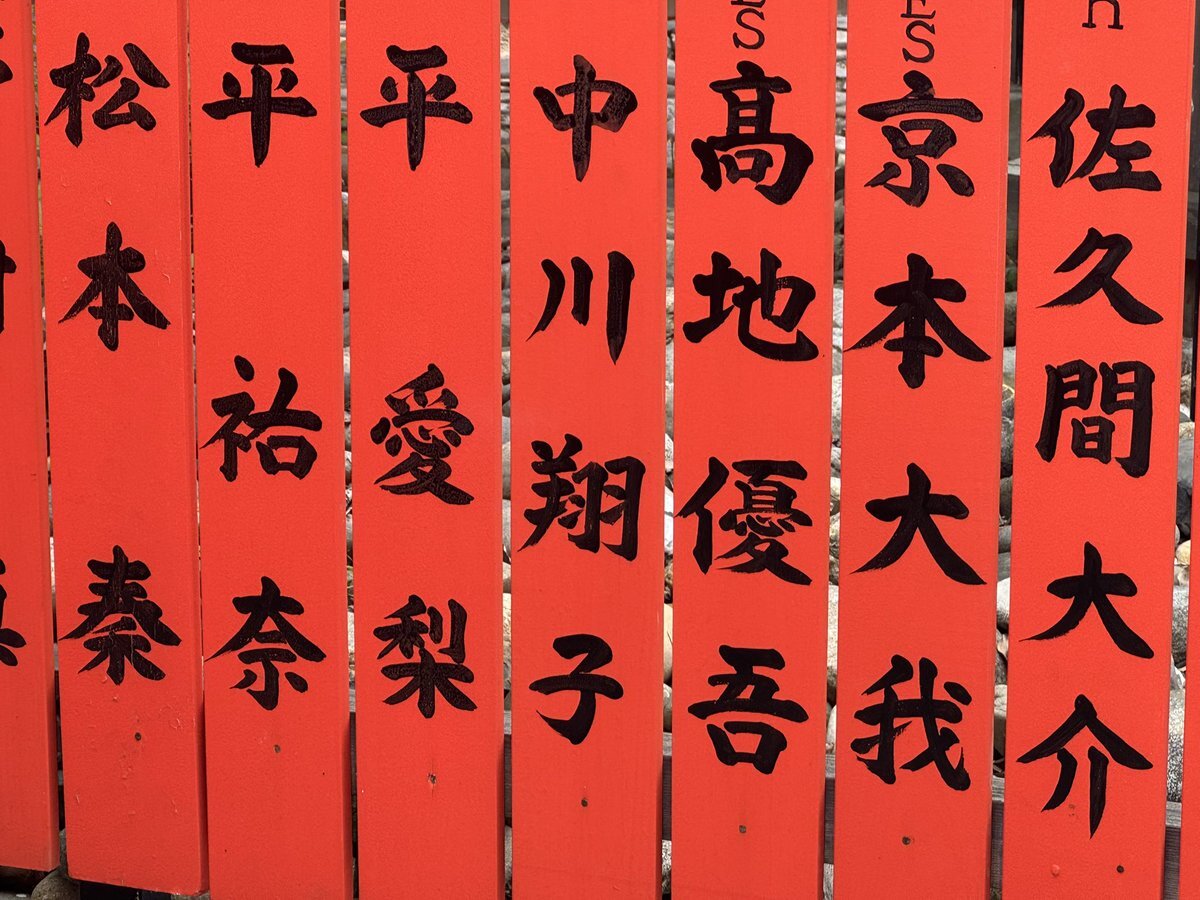 佐久間大介
ES
京本大我
ES
髙地優吾
中川翔子
平愛梨
平祐奈
松本秦